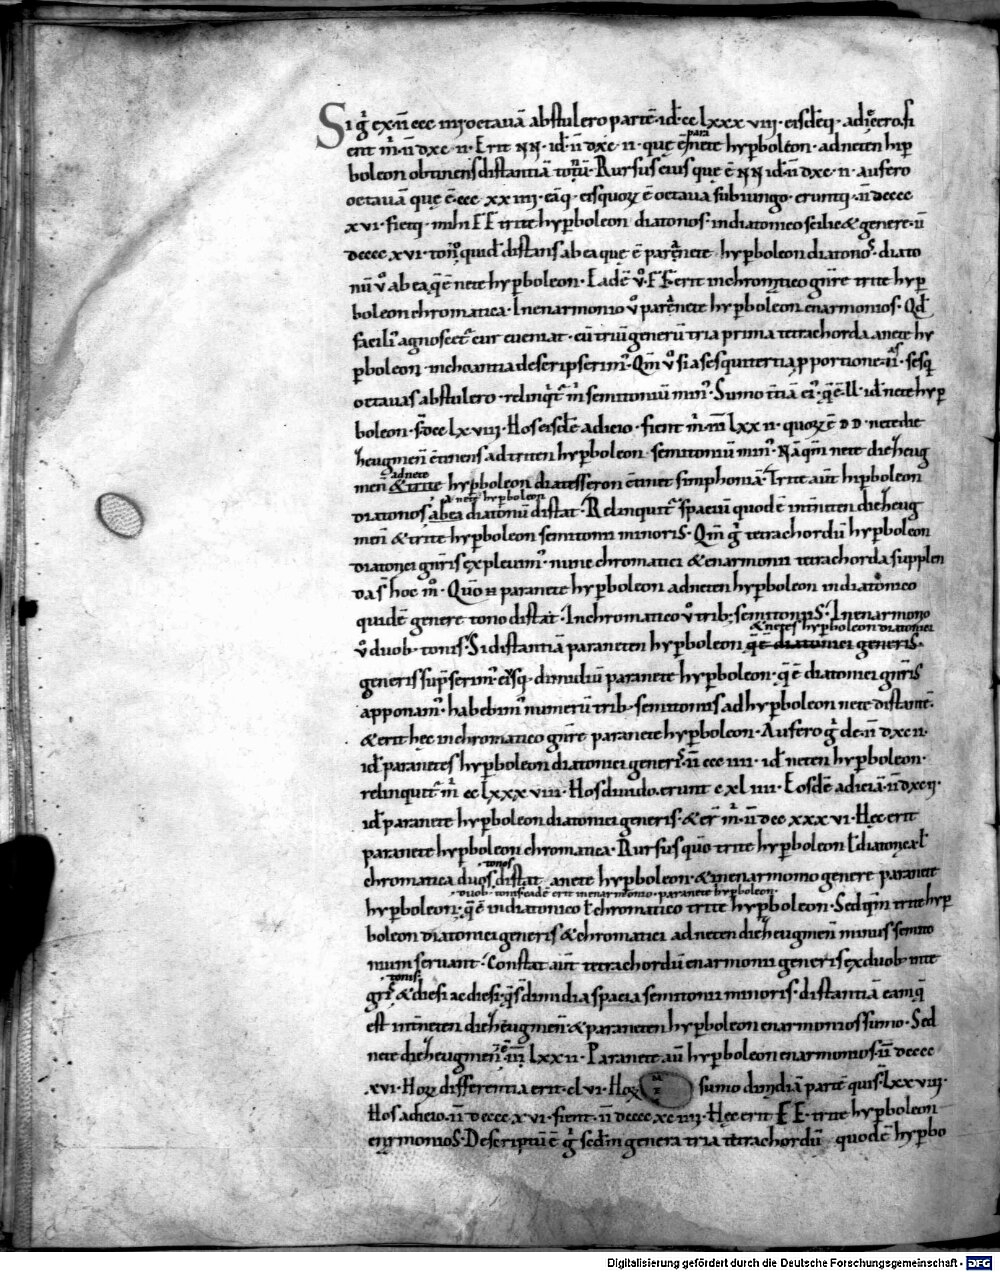 Si g̃ ex·n̄ ccc iiij octauā abstulero partē·id̄·cc lxxx viij·eisdēq·adiecero fi
ent m̄·n̄ dxc·ii·Erit NN·id̄·n̄ dxc·ii·quę ē paranete hyꝑboleon·ad neten hip
boleon obtinens distantiā toni·Rursus eius quę ē NN id·n̄ dxc·ii·aufero
octauā quę ē·ccc·xx iiij·eāq·eis quorꝝ ē octaua subiungo·erunt q·n̄ dcccc
xvi·fietq·mihi FF trite hyꝑboleon diatonos·in diatonico scilicet genere·n̄
dcccc xvi·tono quidē distans ab ea quę ē paranete hyꝑboleon diatonos·diato
nū ū ab ea q̄ ē nete hyꝑboleon·Eadē ū·FF·erit in chromatico gn̄re trite hyꝑ
boleon chromatica·In enarmonio ū paranete hyꝑboleon enarmonios·Qd̄
facili agnoscet cur eueniat·cū triū generū tria prima tetrachorda a nete hy
ꝑboleon inchoantia descripserim·Qm̄ ū si a sesquitertia ꝓportione ii·sesq
octauas abstulero·relinqt m̄ semitoniū min·Sumo t̄tiā ei q̄ ē·ll·id̄ nete hyꝑ
boleon·s̄ dcc lx viii·Hos eisdē adicio·fient m̄·iii lxx ii·quorꝝ ē DD·nete die
zeugmen ctinens ad triten hyꝑboleon·semitoniū min·Nā qm̄ nete diezeug
men ad nete &amp; trite hyꝑboleon diatesseron ctinet simphoniā·Trite aūt hiꝑboleon
diatonos ab ea a nete hyꝑboleon diatonū distat·Relinquit spaciū quod ē int neten diezeug
men &amp; trite hyꝑboleon semitonii minoris·Qm̄ g̃ tetrachordū hyꝑboleon
diatonici gn̄ris expleuim·nunc chromatici &amp; enarmonii tetrachorda supplen
da s̄ hoc m̊·Quō n paranete hyꝑboleon ad neten hyꝑboleon in diatonico
quidē genere tono distat·In chromatico ū trib; semitoniis·In enarmonio
ū duob·tonis·Si distantiā paraneten hyꝑboleon &amp; netes hyꝑboleon diatonici q̄ ē diatonici generis
generis sūpserim·eisq·dimidiū paranete hyꝑboleon·q̄ ē diatonici gn̄ris
apponam·habebim numerū trib·semitoniis ad hyꝑboleon nete distantē·
&amp; erit hęc in chromatico gn̄re paranete hyꝑboleon·Aufero g̃ de·n̄ dxc ii·
id̄ paranetes hyꝑboleon diatonici generis·n̄ ccc iiii·id̄ neten hyꝑboleon·
relinquūt m̄ cc lxxx viii·Hos diuido·erunt c xl iiii·Eosdē adiciā·n̄ dxc ij·
id̄ paranete hyꝑboleon diatonici generis·&amp; er̄ m̄·n̄ dcc xxx vi·Hęc erit
paranete hyꝑboleon chromatica·Rursus quō trite hyꝑboleon ł diatonica ł
chromatica duos tonos distat a nete hyꝑboleon·&amp; in enarmonio genere paranete
duob·tonis·eadē erit in enarmonio·paranete hyꝑboleon·
hyꝑboleon·q̄ ē in diatonico ł chromatico trite hyꝑboleon·Sed qm̄ trite hyꝑ
boleon diatonici generis &amp; chromatici ad neten diezeugmen minus semito
nium seruant·Constat aūt tetrachordū enarmonii generis ex duob·inte
gris tonis·&amp; diesi ac diesi·q̄ s̄ dimidia spacia semitonii minoris·distantiā eam q
est int neten diezeugmen &amp; paraneten hyꝑboleon enarmonios sumo·Sed
nete diezeugmen ē·iii lxx ii·Paranete aū hyꝑboleon enarmonios·n̄ dcccc
xvi·Horꝝ differentia erit·c lvi·Horꝝ sumo dimidiā partē quis·lxx viii·
Hos adicio·n̄ dcccc xvi·fient·n̄ dcccc xc iiij·Hęc erit EE·trite hyꝑboleon
enarmonios·Descriptū ē g̃ scdm̄ genera tria tetrachordū quod ē hyꝑbo
Digitalisierung gefördert durch die Deutsche Forschungsgemeinschaft - DFG